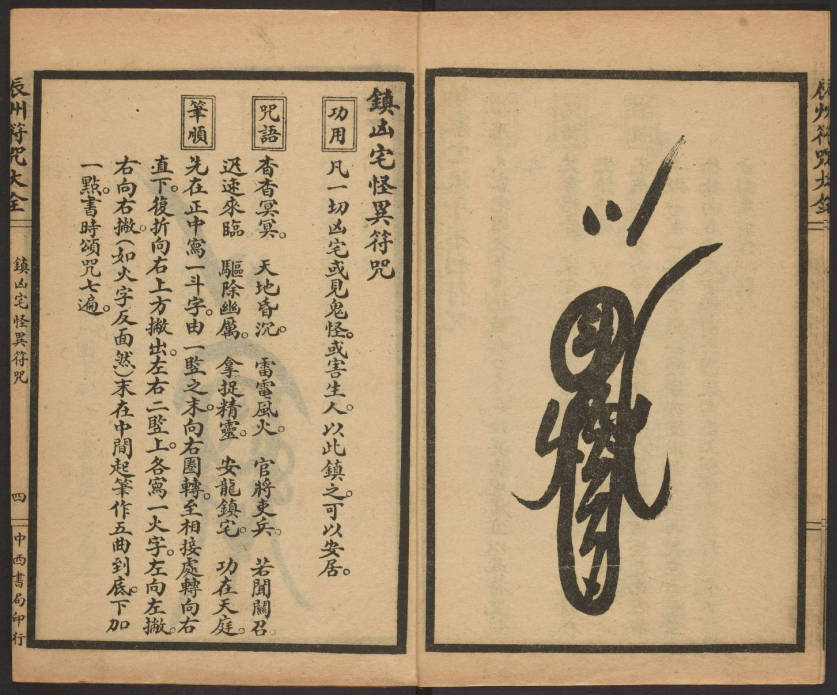 辰州符咒大全
鎮凶宅怪異符咒
功用
凡一切凶宅或見鬼怪。或害生人。以此鎮之。可以安居。
咒語
杳杳冥冥。 天地昏沉。 雷電風火。 官將吏兵。 若聞關召。
迅速來臨 驅除幽厲。 拿捉精靈。 安龍鎮宅。 功在天庭。
筆順
先在正中寫一斗字。由一竪之末。向右圈轉。至相接處轉向右
直下。復折向右上方撇出。左右二竪上。各寫一火字。左向左撇。
右向右撇。(如火字反面然)末在中間起筆作五曲到底。下加
一點。書時頌咒七遍。
辰州符咒大全
鎮凶宅怪異符咒
四
中西書局印行